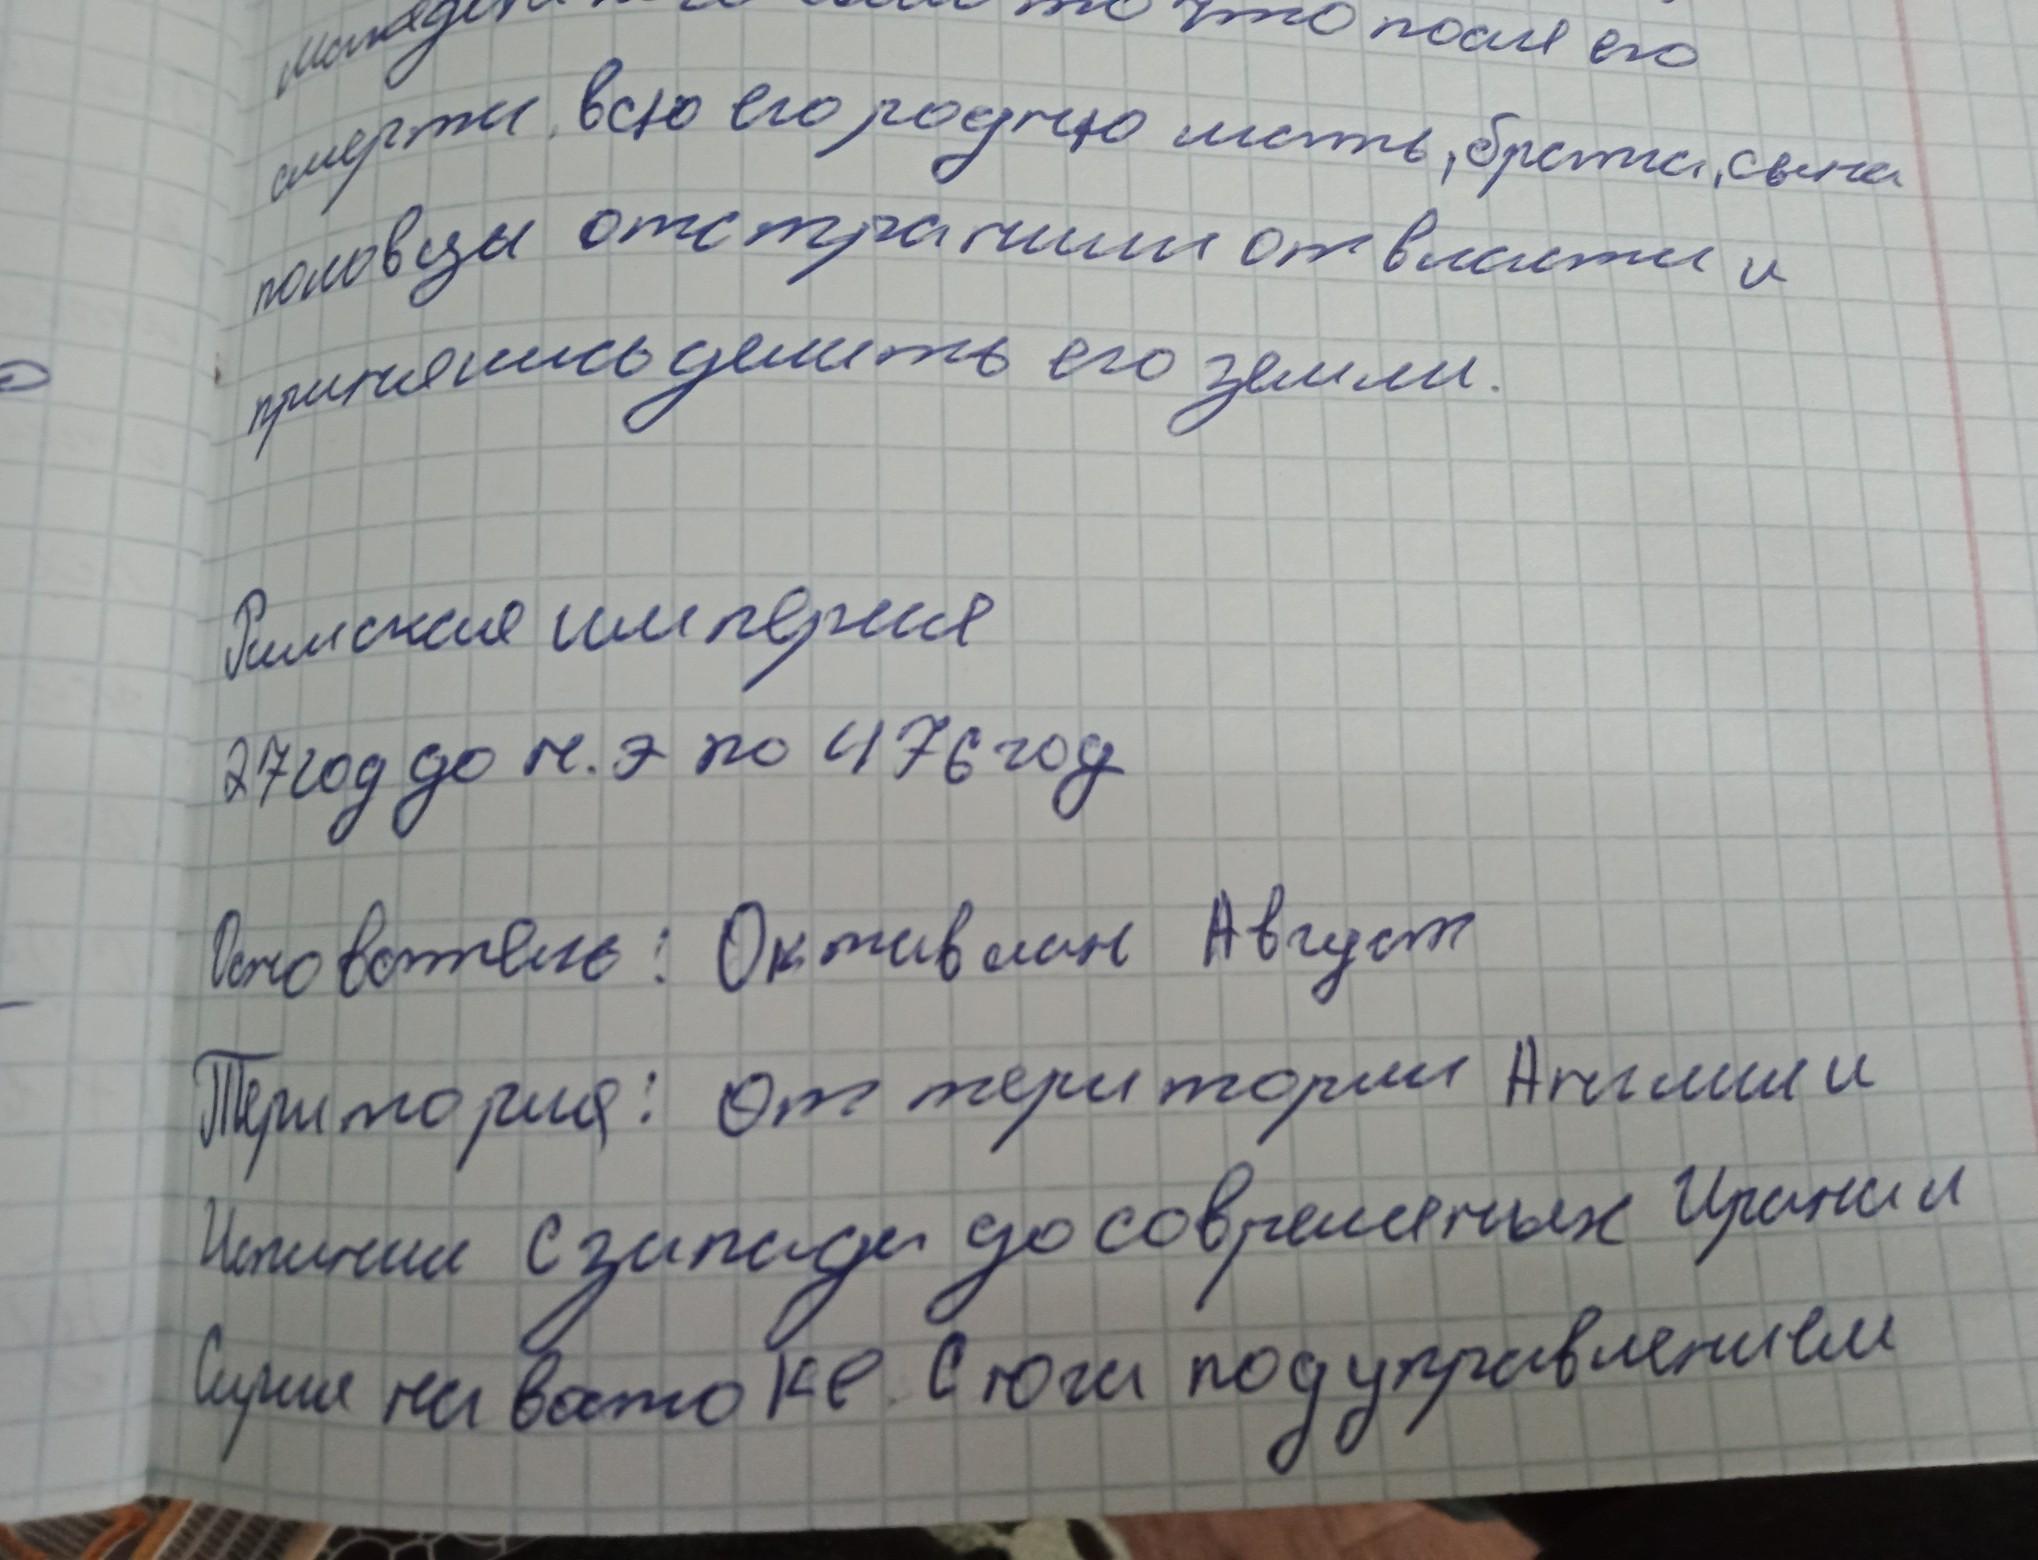 то что после его
смерти, всю его родню мать, брата, сына
половцы отстранили от власти и
принялись делить его земли.
Римская империя
27 год до н.э по 476 год
Основатель: Октавиан Август
Територия: От територии Англии и
Испании с запада до современых Ирана и
Сирия на востоке. С юга под управлением